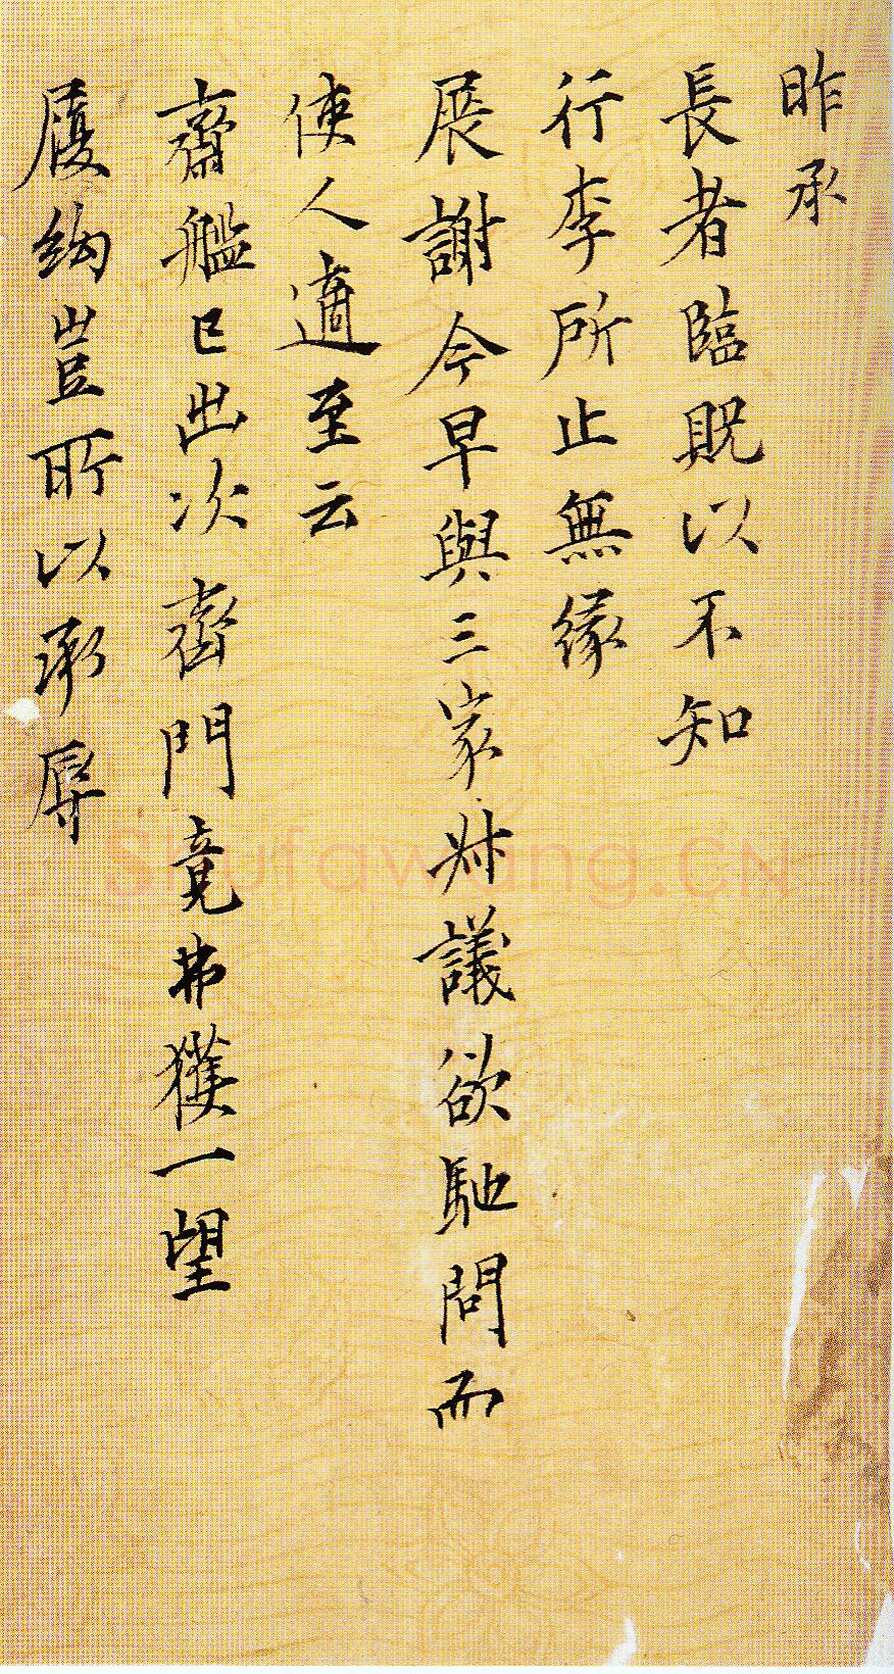 昨承
長者臨貺以不知
行李所止無緣
展謝今早與三家叔議欲馳問而
使人適至云
齋艦已出次齊門竟弗獲一望
履絇豈所以承辱
Shufawang.CN